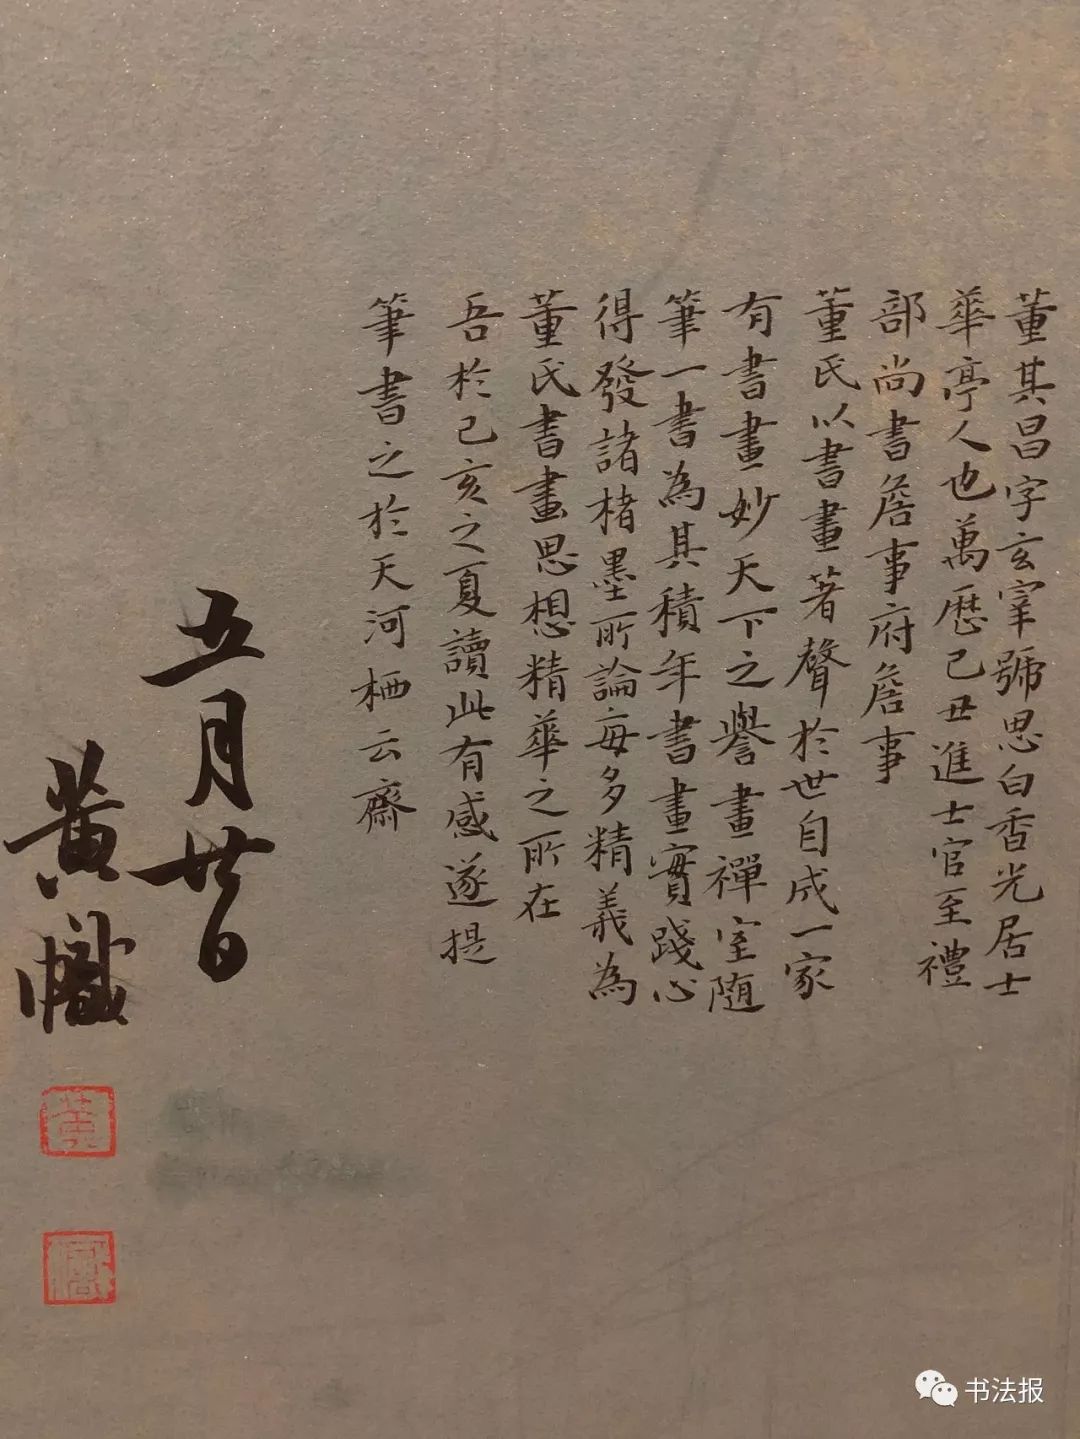 董其昌字玄宰號思白香光居士
華亭人也萬歷己丑進士官至禮
部尚書詹事府詹事
董氏以書畫著聲於世自成一家
有書畫妙天下之譽畫禪室随
筆一書為其積年書畫實踐心
得發諸楮墨所論每多精義為
董氏書畫思想精華之所在
吾於己亥之夏讀此有感遂提
筆書之於天河栖云齋
五月廿日
黄幟
書法报